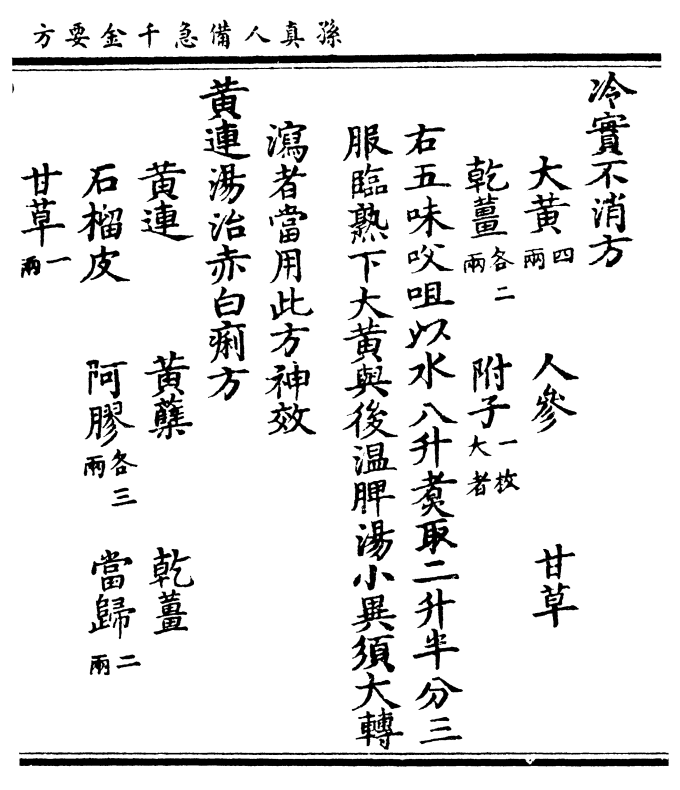 孫真人備急千金要方
冷實不消方
大黄四兩　人參　甘草
乾薑各二兩　附子一枚大者
右五味㕮咀以水八升煑取二升半分三
服臨熟下大黄與後温脾湯小異須大轉
瀉者當用此方神效
黄連湯治赤白痢方
黄連　黄蘗　乾薑
石榴皮　阿膠各三兩　當歸二兩
甘草一兩